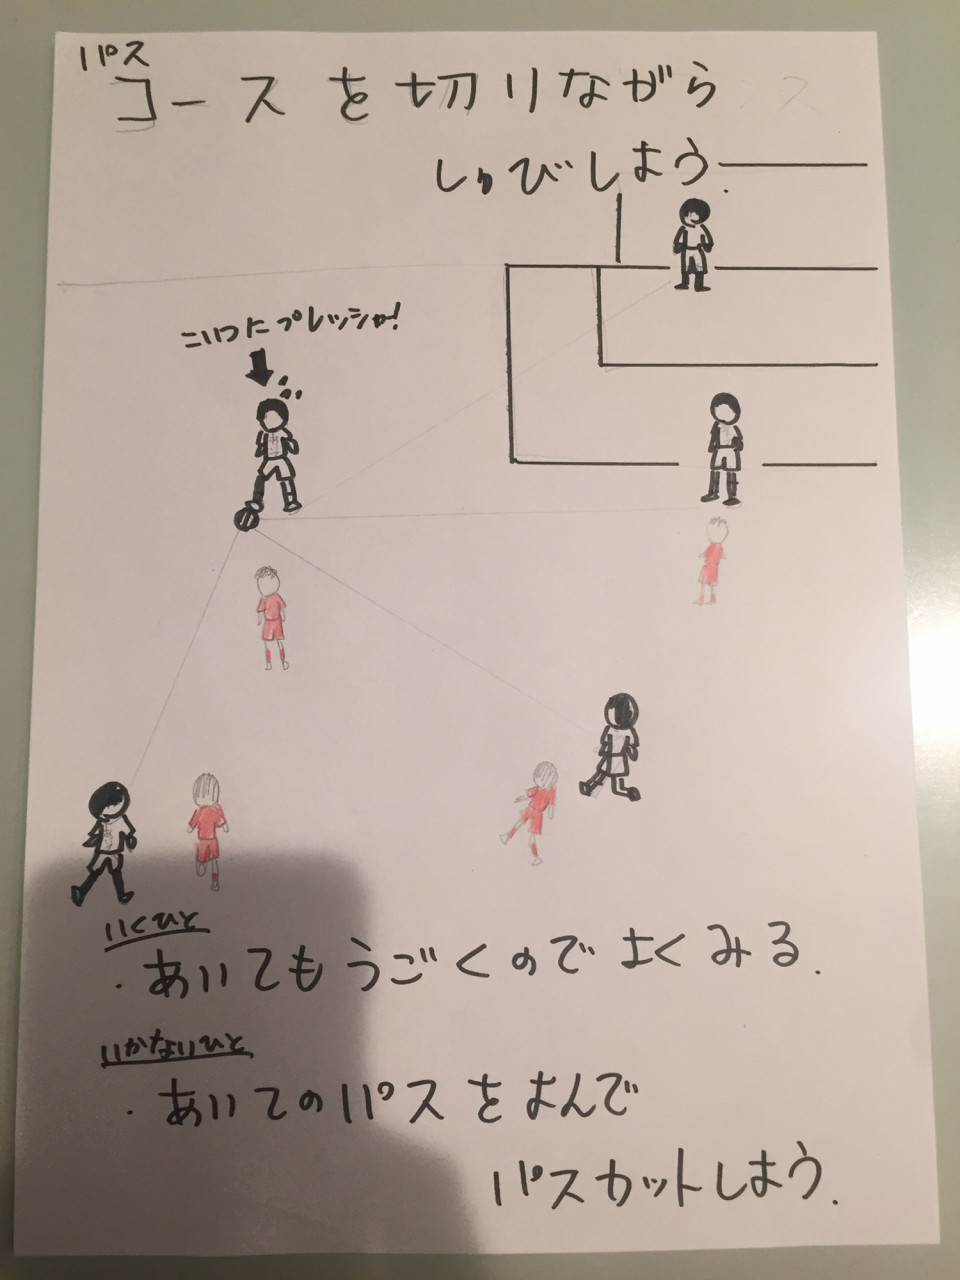 パス
コースを切りながら
しゅびしよう.
こいつにプレッシャー!
いくひと
・あいてもうごくのでよくみる.
いかないひと
・あいてのパスをよんで
パスカットしよう.